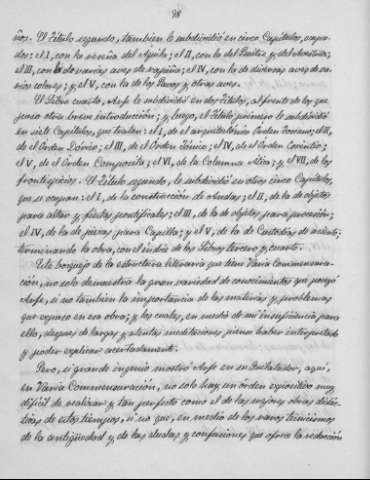 98
ños. El Título segundo, tambien lo subdividió en cinco Capítulos, ocupa-
dos: el I, con la reseña del Aguila; el II, con la del                y del Avestruz;
el III, con la de varias aves de rapiña; el IV, con la de diversas aves de va-
rios colores; y el V, con la de los Pavos y otras aves.
El Libro cuarto, Arfe lo subdividió en dos Títulos, al frente de los que
puso otra breve introducción; y luego, el Título primero lo subdividió
en siete Capítulos, que tratan: el I, de el arquitectónico Orden Toscano; el II,
de el Orden Dórico; el III, de el Orden Jónico; el IV, de el Orden Corintio;
el V, de el Orden Composito; el VI, de la Columna Atica; y el VII, de los
frontispicios. El Título segundo, lo subdividió en otros cinco Capítulos,
que se ocupan: el I, de la construcción de Andas; el II, de la de objetos
para altar y fiestas pontificales; el III, de la de objetos para procesión;
el IV, de la de piezas para Capilla; y el V, de la de Custodias de asiento;
terminando la obra, con el índice de los Libros tercero y cuarto.
Este bosquejo de la estructura literaria que tiene Varia Commensura-
ción, no solo demuestra la gran variedad de conocimientos que poseyó
Arfe, si no tambien la importancia de las materias y problemas
que expuso en esa obra; y los cuales, en medio de mi insuficiencia para
ello, despues de largas y atentas meditaciones pienso haber interpretado
y poder explicar acertadamente.
Pero, si grande ingenio mostró Arfe en su Quilatador, aquí,
en Varia Commensuración, no solo hay un orden expositivo muy
difícil de realizar y tan perfecto como el de las mejores obras didác-
ticas de estos tiempos, si no que, en medio de los raros tecnicismos
de la antigüedad y de las dudas y confusiones que ofrece la redacción